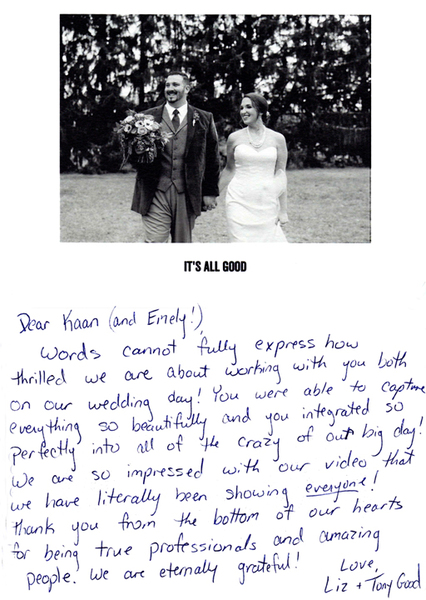 IT'S ALL GOOD
Dear Kaan (and Emely!),
Words cannot fully express how
thrilled we are about working with you both
on our wedding day! You were able to capture
everything so beautifully and you integrated so
perfectly into all of the crazy of our big day!
We are so impressed with our video that
we have literally been showing everyone!
Thank you from the bottom of our hearts
for being true professionals and amazing
people. We are eternally grateful!
Love,
Liz + Tony Good